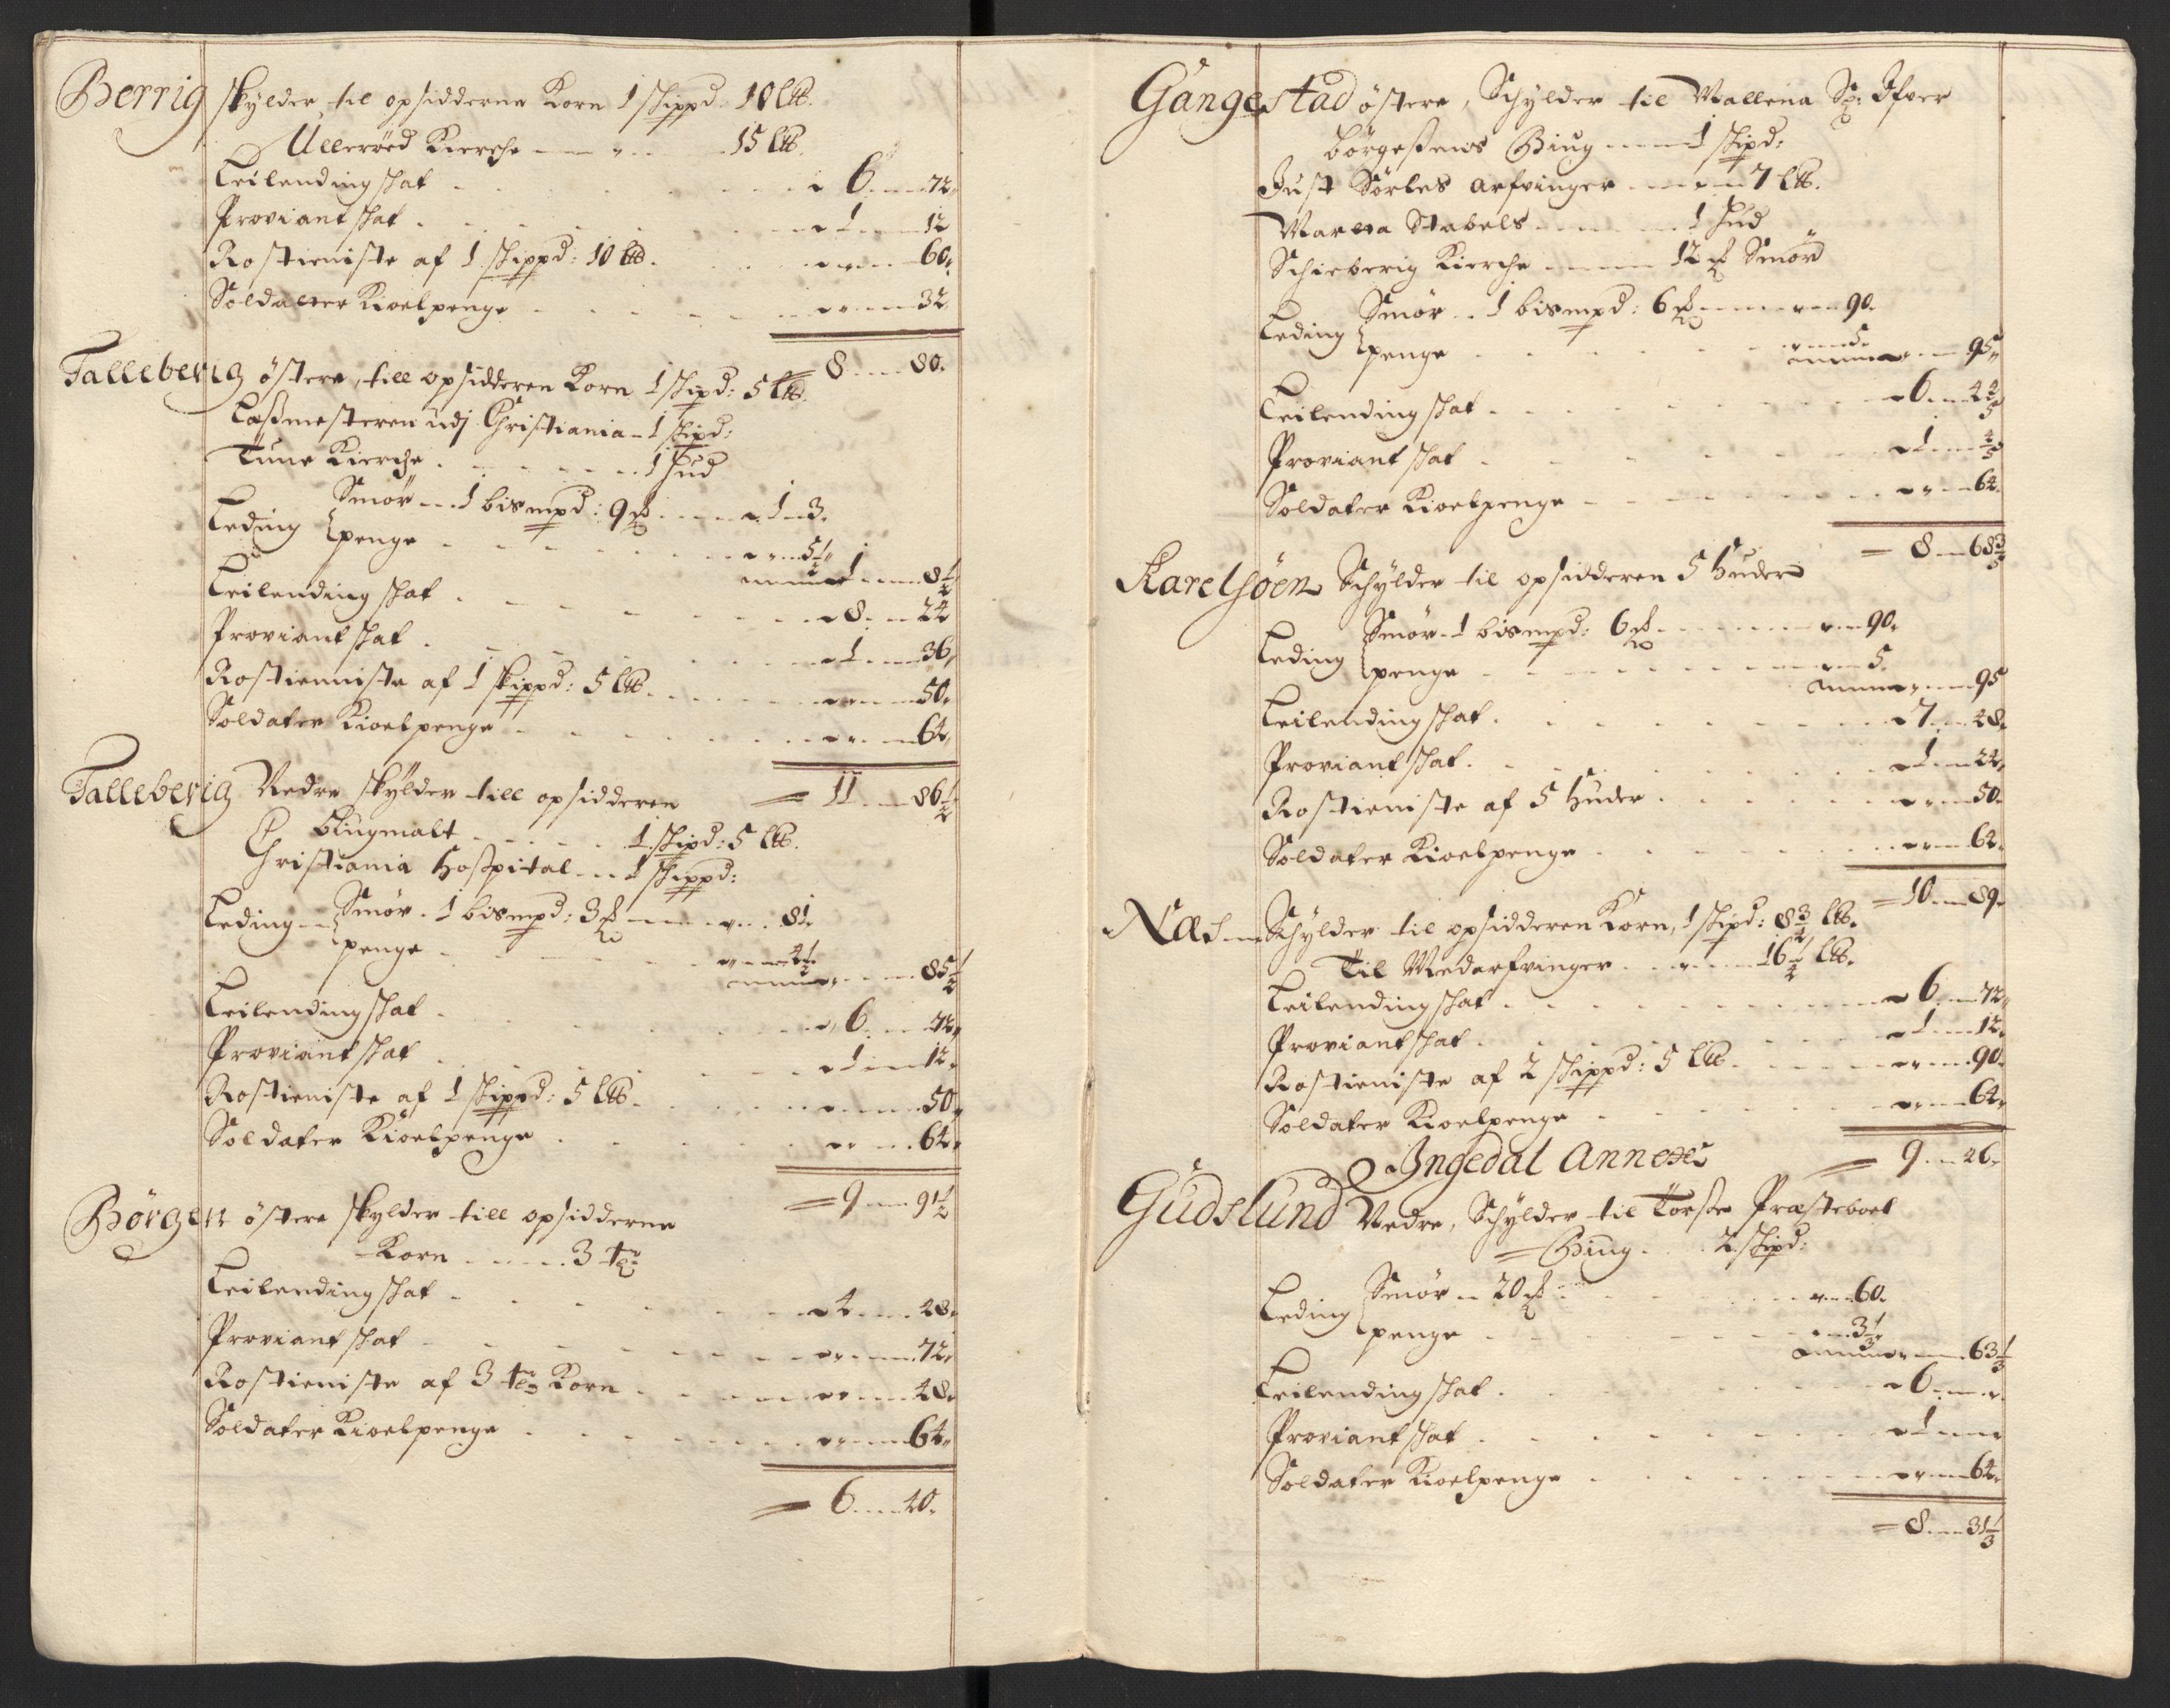 Berrig skylder til opsidderne Korn 1 skippd: 10 l℔.
Ullerøed Kierche --- " --- 15 l℔.
Leilending skat . . . . " 6 --- 72"
Proviant skat . . . . " 1 --- 12
Rostieniste af 1 skippd: 10 l℔. . . " " --- 60"
Soldatter Kioelpenge . . . . " " --- 32"
8 --- 80.
Talleberig östere, till opsidderen Korn 1 skipd: 5 l℔.
Laßmesteren udj Christiania - 1 skipd:
Tune Kierche . . . . 1 Hud
Leding { Smör --- 1 bismpd: 9 ℔ --- " 1 --- 3.
penge . . . . " " --- 5½" --- " 1 --- 8½
Leilending skat . . . . " 8 --- 24
Proviant skat . . . . " 1 --- 36"
Rostienniste af 1 skippd: 5 l℔. . . " " --- 50.
Soldater Kioelpenge . . . . " " --- 64"
= 11 --- 86½
Talleberig Nedre skylder till opsidderen
Blugmalt . . . . 1 skipd: 5 l℔.
Christiania Hospital --- 1 skippd:
Leding -- { Smör . 1 bismpd: 3 ℔ --- " --- 81.
penge . . . . " " --- 4½ --- " " --- 85½
Leilending skat . . . . " 6 --- 72"
Proviant skat . . . . " 1 --- 12.
Rostieniste af 1 skippd: 5 l℔. . . " " --- 50"
Soldater Kioelpenge . . . . " " --- 64.
= 9 --- 91½
Börgen östere skylder till opsidderne
Korn . . . . 3 tr
Leilending skat . . . . " 4 --- 48.
Proviant skat . . . . " " --- 72"
Rostieniste af 3 tr Korn . . . " " --- 48.
Soldater Kioelpenge . . . . " " --- 64"
= 6 --- 40.
Gangestad östere, Schylder til Mallena Sl: Ifver
Börgesens Biug --- 1 skipd:
Just Sörles arfvinger --- " --- 7 l℔.
Maretta Stabels . . . . 1 Hud
Schieberig Kierche --- 12 ℔ Smör
Leding { Smör . . 1 bismpd: 6 ℔ --- " --- 90.
penge . . . . " --- 5. --- " --- 95"
Leilending skat . . . . " 6 --- 4⅘
Proviant skat . . . . " 1 --- ⅘
Soldater Kioelpenge . . . . " " --- 64.
= 8 --- 68⅗
Karelsöen Schylder til opsidderen 5 Huder
Leding { Smör - 1 bismpd: 6 ℔ . . . " --- 90.
penge . . . . " --- 5. --- " --- 95
Leilending skat . . . . " 7 --- 48.
Proviant skat . . . . " 1 --- 24"
Rostieniste af 5 Huder . . . " " --- 50.
Soldater Kioelpenge . . . . " " --- 64.
= 10 --- 89.
Næs --- Schylder til opsidderen Korn, 1 skipd: 8¾ l℔.
Til Medarfvinger . . . " --- 16¼ l℔.
Leilending skat . . . . " 6 --- 72"
Proviant skat . . . . " 1 --- 12.
Rostieniste af 2 skippd: 5 l℔. . . " " --- 90.
Soldater Kioelpenge . . . . " " --- 64"
= 9 --- 46.
Ingedal Annex
Gudslund Nedre, Schylder til Torsöe Præsteboel
Biug . . . 2 skipd:
Leding { Smör -- 20 ℔ . . . " --- 60.
penge . . . . " --- 3⅓" --- " --- 63⅓
Leilending skat . . . . " 6 --- "
Proviant skat . . . . " 1 --- "
Soldater Kioelpenge . . . . " " --- 64"
= 8 --- 31⅓